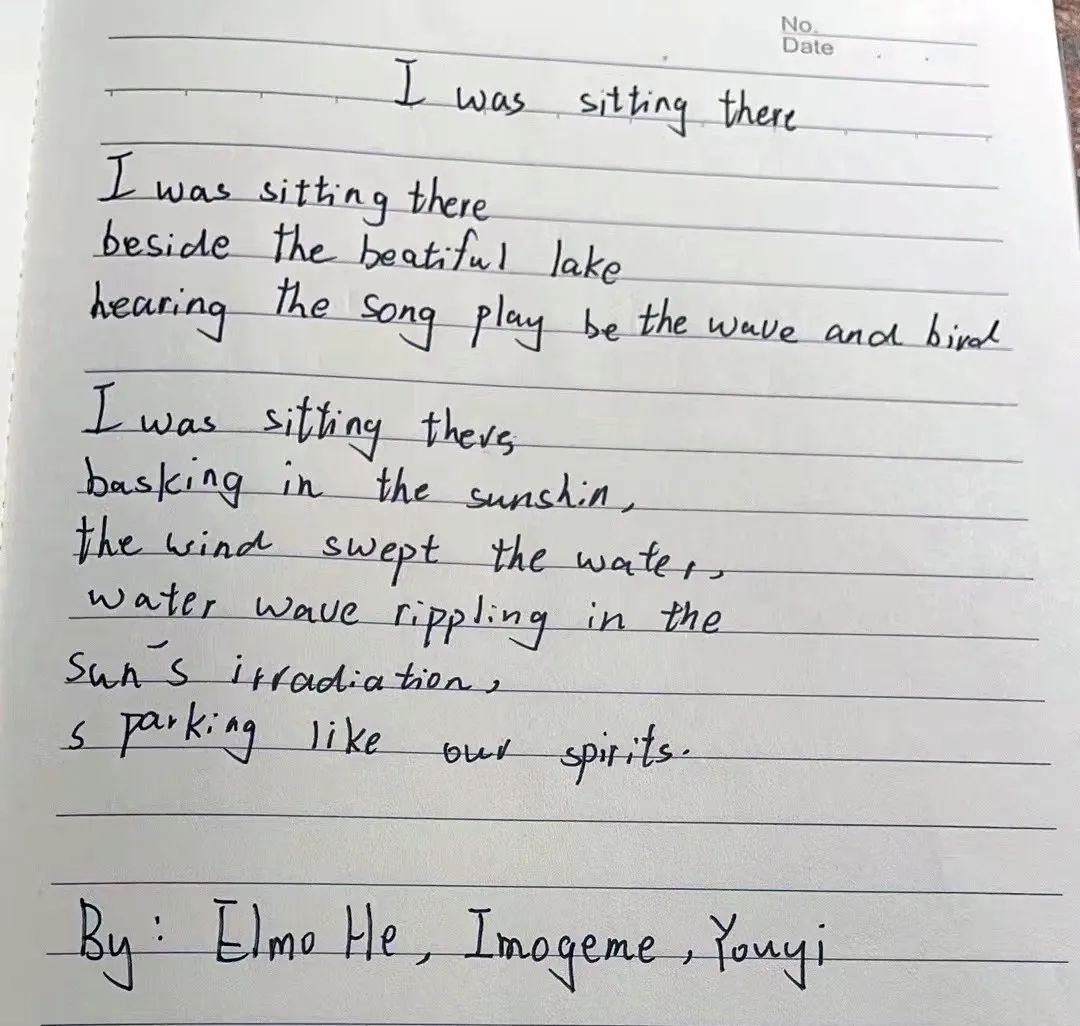 No.
Date
I was sitting there
I was sitting there
beside the beatiful lake
hearing the song play be the wave and bird
I was sitting there,
basking in the sunshin,
the wind swept the water,
water wave rippling in the
sun's irradiation,
sparking like our spirits.
By: Elmo He, Imogeme, Youyi